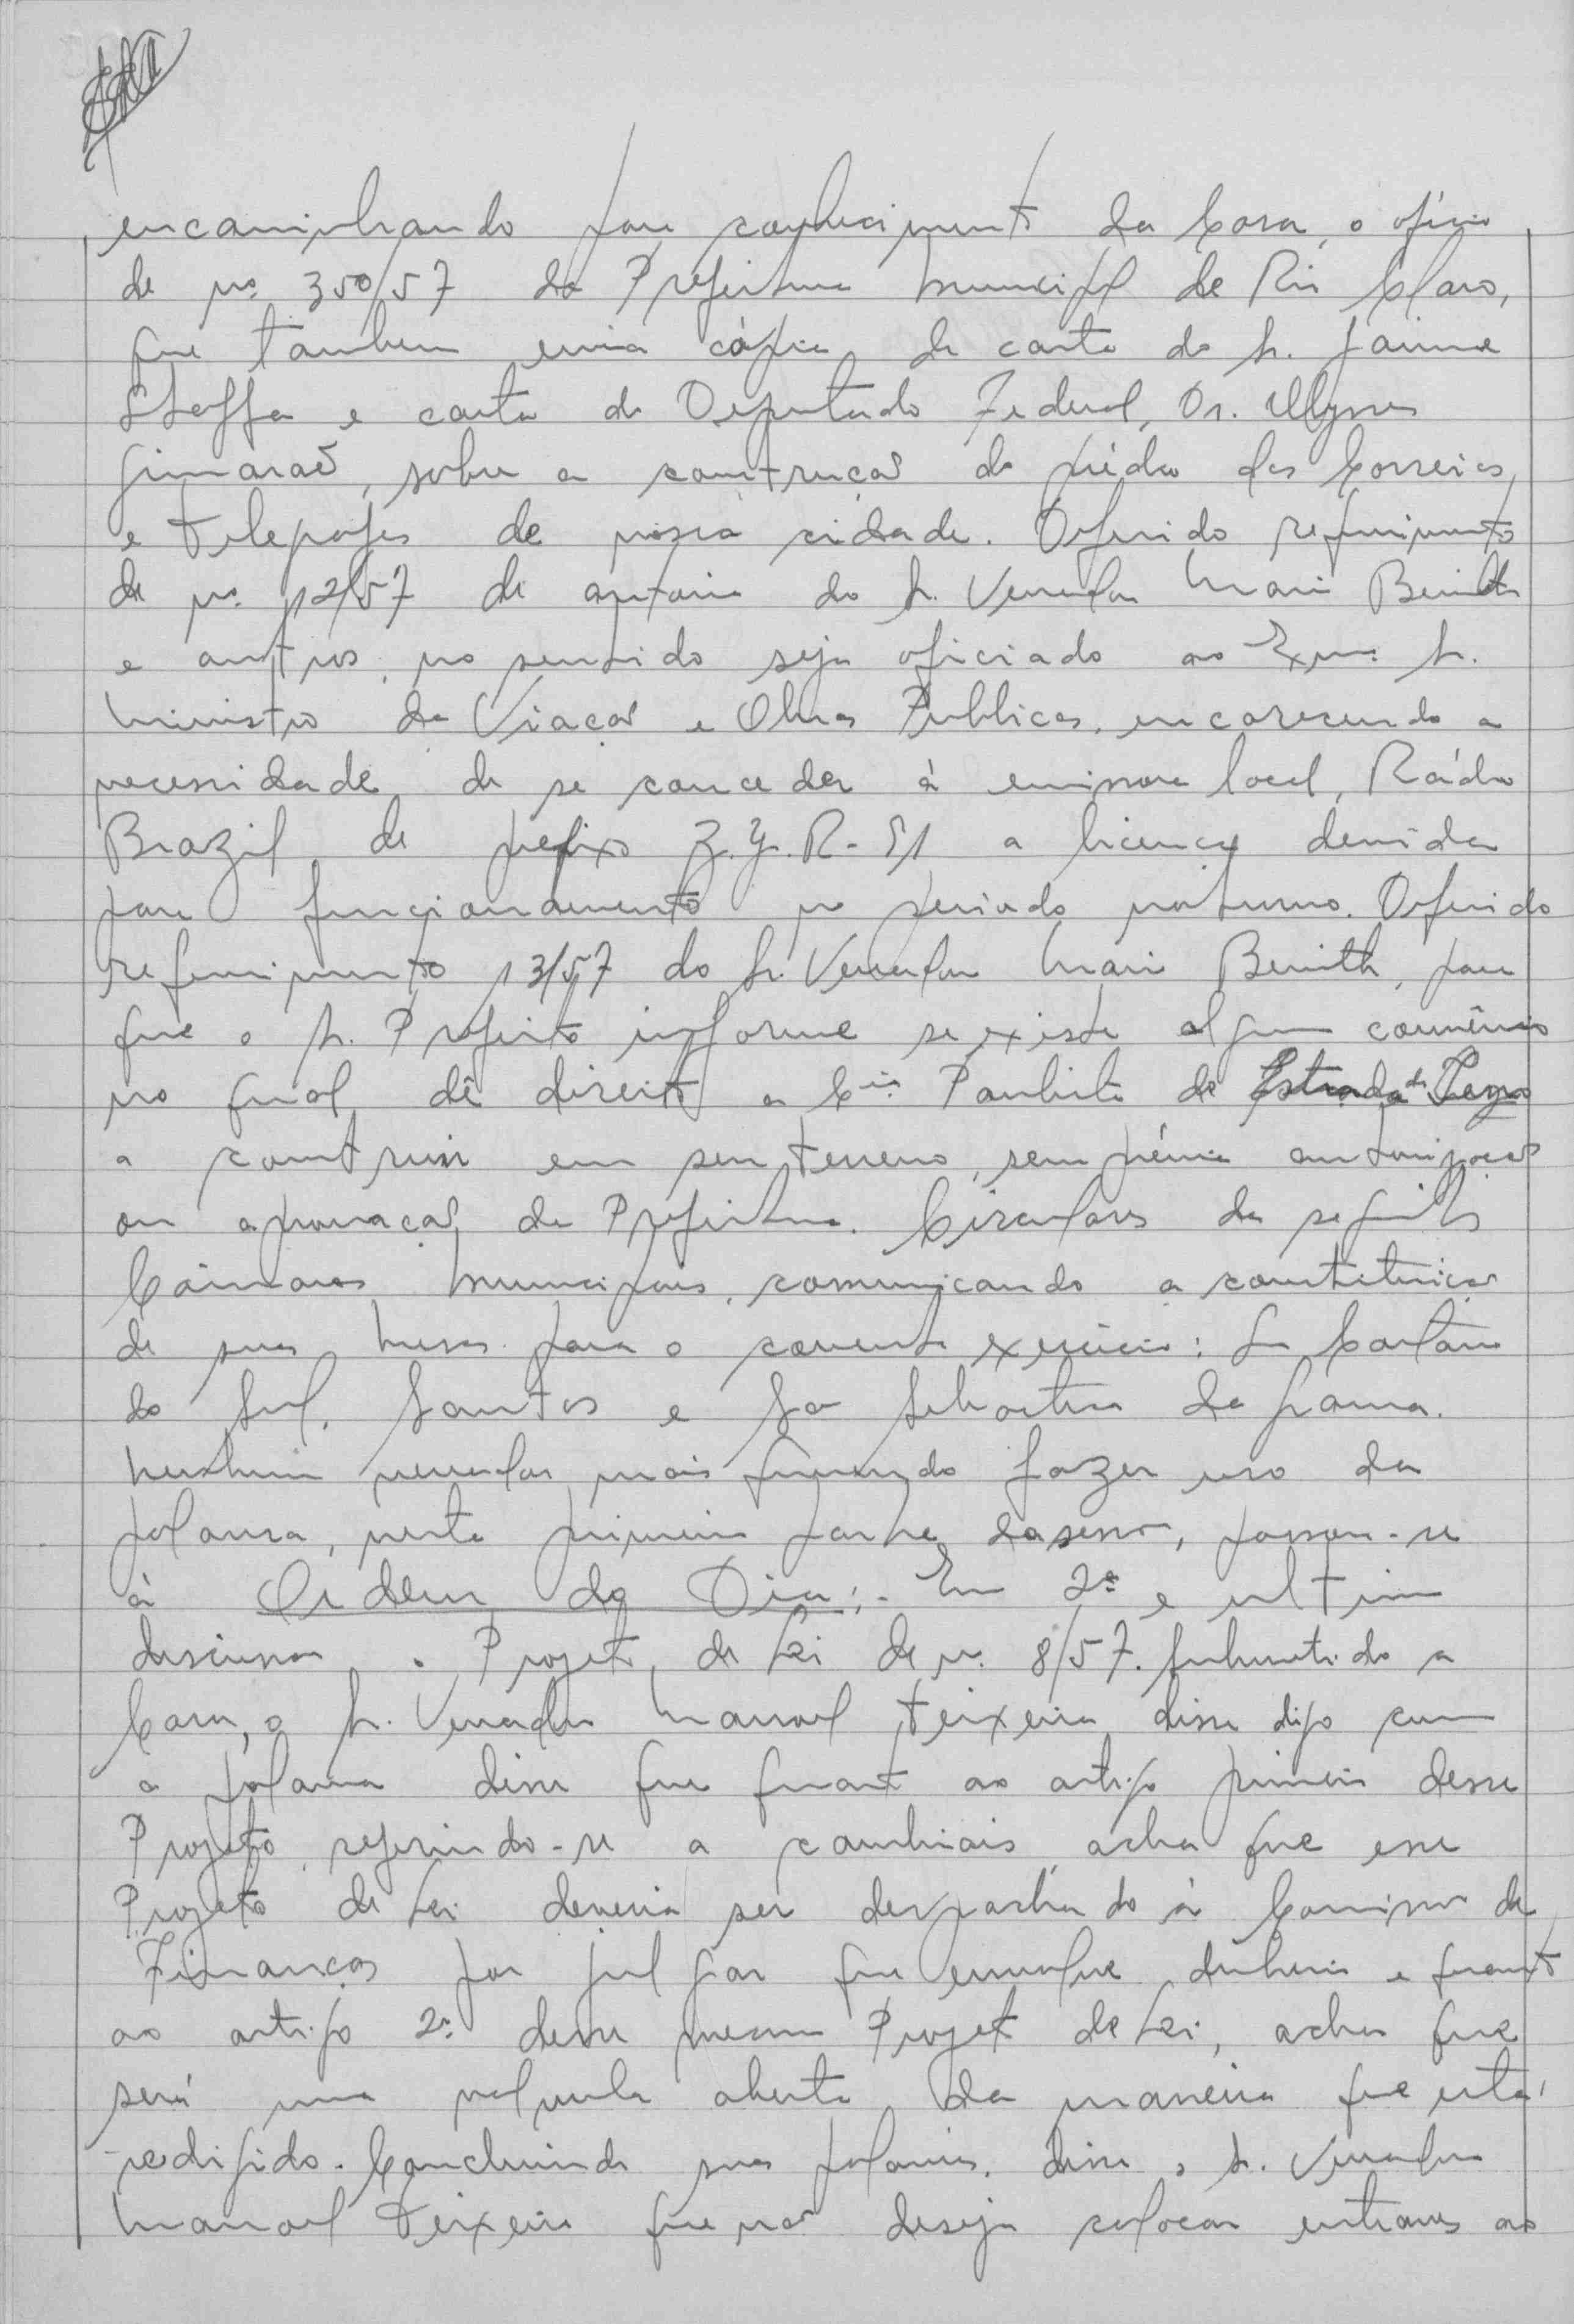 encaminhando para conhecimento da Casa, o ofício
de nº 350/57 da Prefeitura Municipal de Rio Claro,
que tambem envia cópia da carta do Sr. Jaime
Steffa e carta do Deputado Federal, Dr. Ulysses
Gimaraẽ, sobre a construçaõ do prédio dos Correios
e Telegrafos de nossa cidade. Deferido requerimento
de nº 12/57 de autoria do Sr. Vereador Mario
e outros, no sentido seja oficiado ao Exmº Sr.
Ministro da Viaçaõ e Obras Publicas, encarecendo a
necessidade de se conceder à emissora local, Rádio
Brazil de prefixo Z.Y.R-51 a licença devida
para funcionamento no periodo noturno. Deferido
requerimento 13/57 do Sr. Vereador Mario, para
que o Sr. Prefeito informe se existe algum convênio
no qual dê direito a Cia Paulista de Estrada de
a construir em seu terreno, sem prévia autorizaçaõ
ou aprovaçaõ da Prefeitura. Circulares das seguintes
Câmaras Municipais, comunicando a constituiçaõ
de suas mesas para o corrente exercicio: S Caetano
do Sul, Santos e São Sebastião da Grama.
Nenhum vereador mais querendo fazer uso da
palavra, nesta primeira parte da sessão, passou-se
à Ordem do Dia:- Em 2ª e ultima
discussão o Projeto de Lei de n. 8/57. Submetido a
Casa, o Sr. Vereador Manoel Teixeira disse digo com
a palavra disse que quanto ao artigo primeiro desse
Projeto, referindo-se a cambiais, acha que esse
Projeto de Lei deveria ser despachado à Comissão de
Finanças por julgar que envolve dinheiro e quanto
ao artigo 2º desse mesmo Projeto de Lei, acha que
será uma valvula aberta da maneira que está
redigido. Concluindo suas palavras, disse o Sr. Vereador
Manoel Teixeira que naõ deseja colocar entraves ao